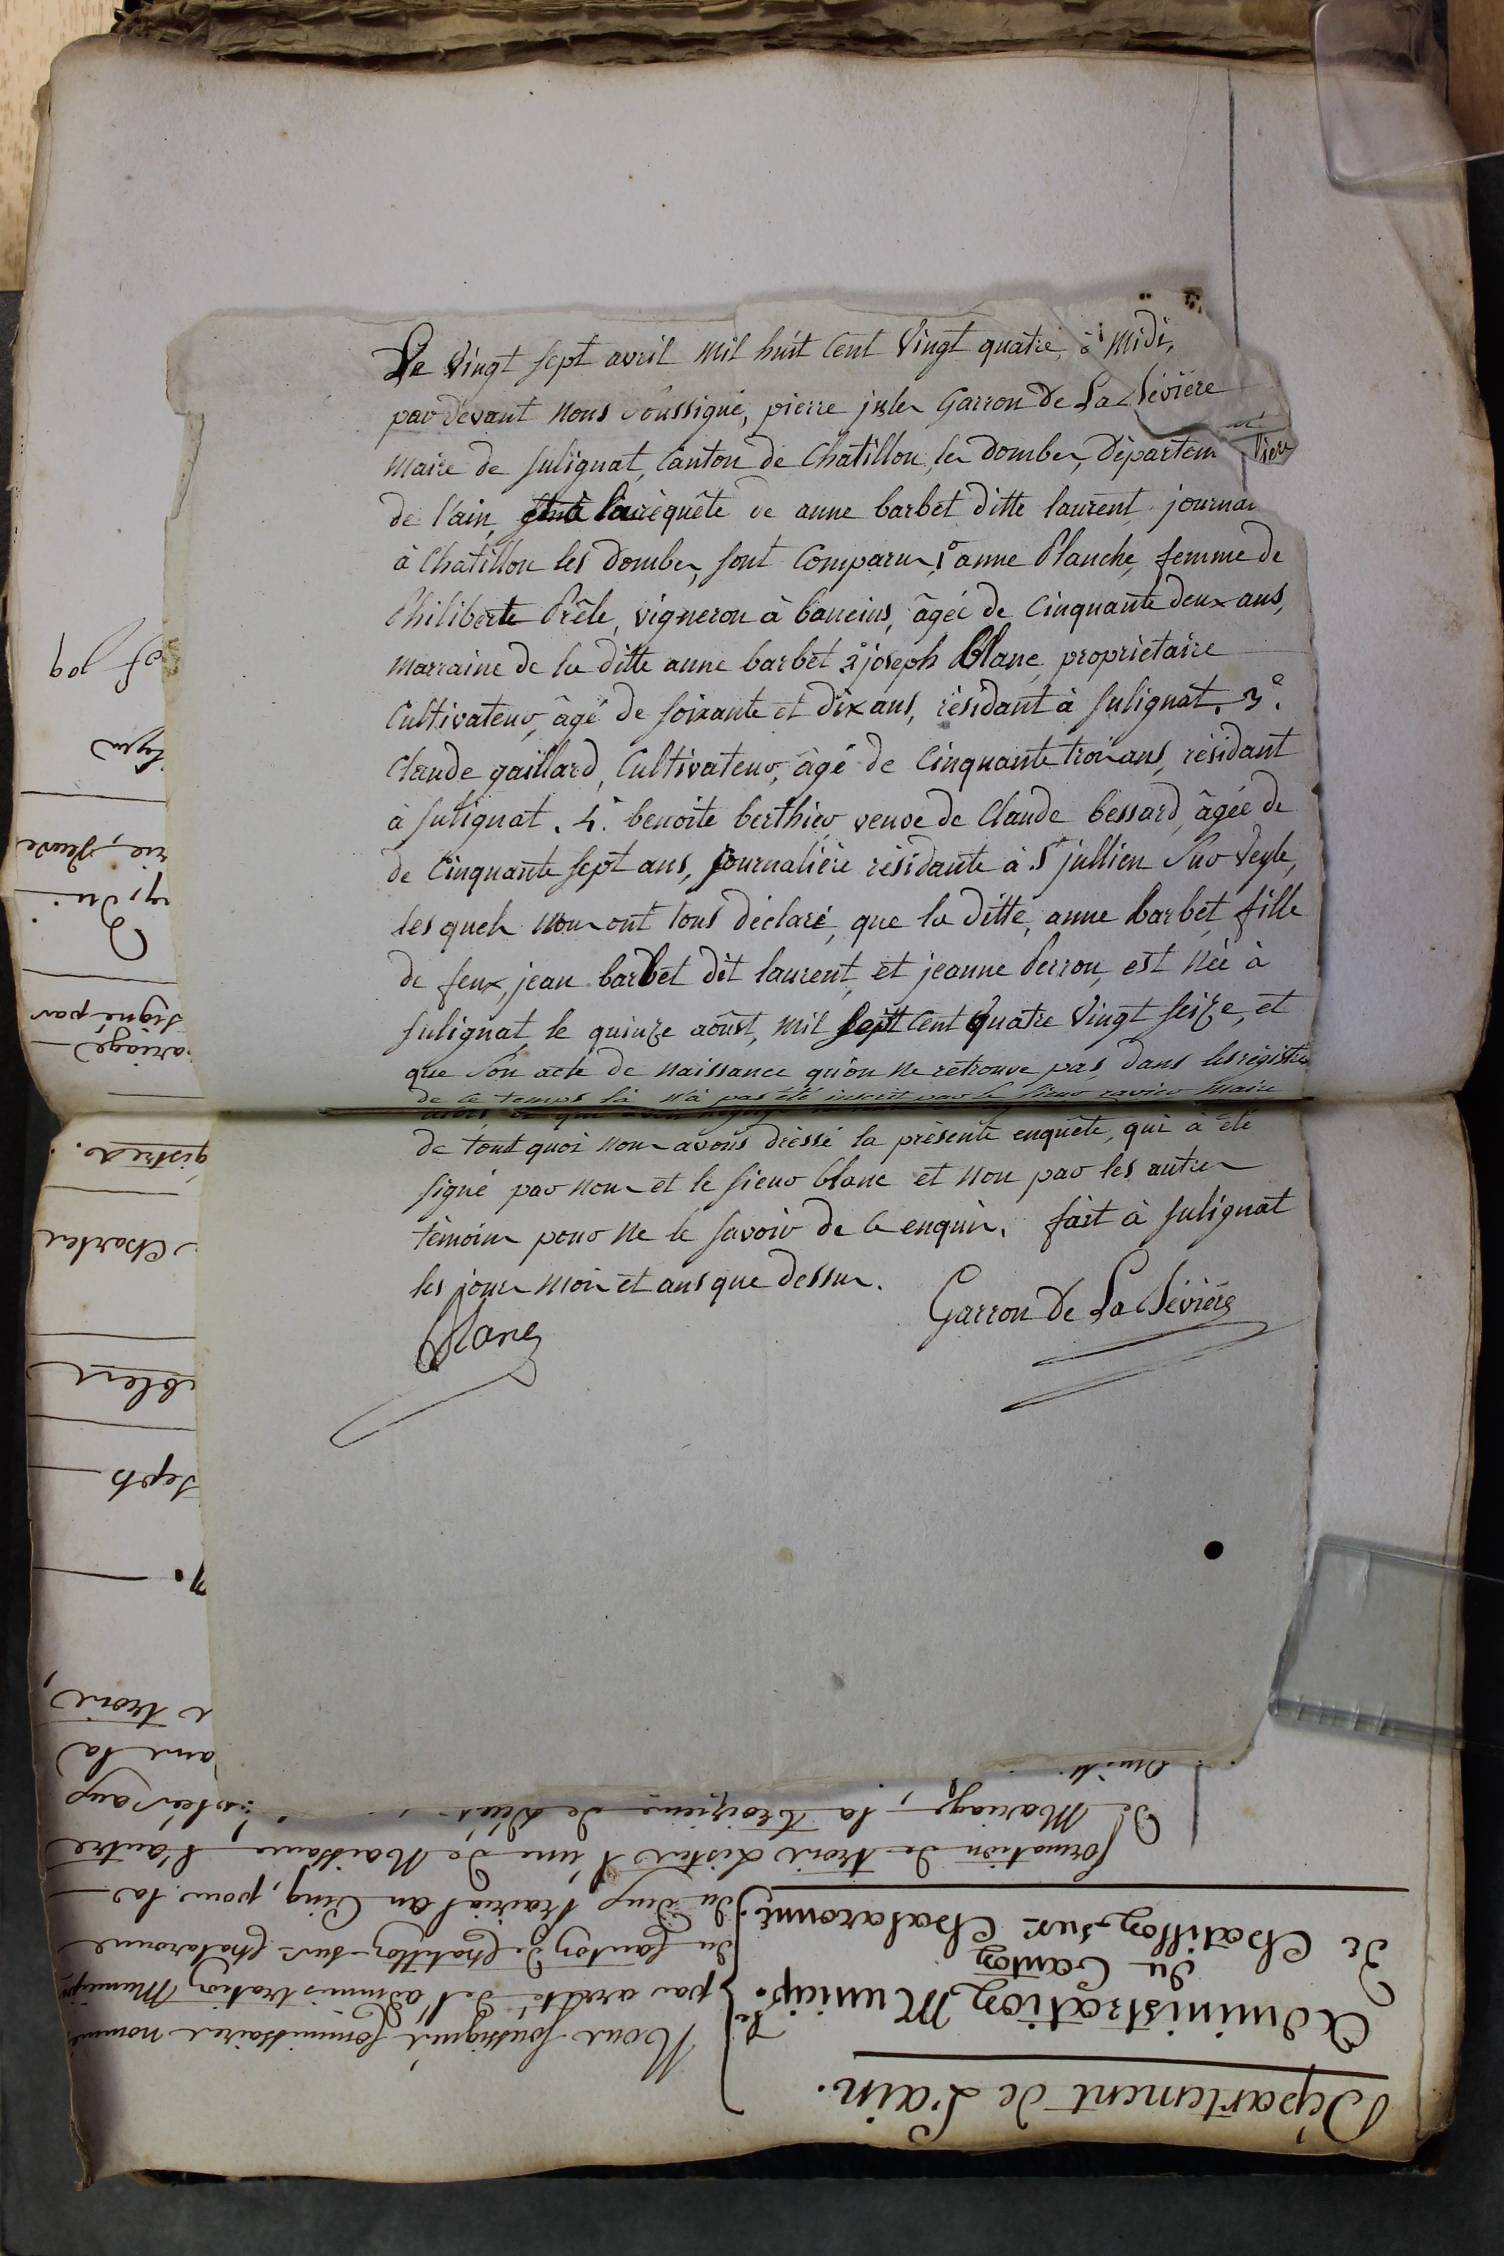 Le Vingt sept avril mil huit cent Vingt quatre, à midi,
par devant nous soussigné, pierre jules Garron de La Bévière
maire de sulignat, canton de Chatillon les dombes, Départem
de l'ain, à la requête de anne barbet ditte laurent, journal
à Chatillon les dombes, sont comparus 1° anne Planche, femme de
Philiberte Prêle, vigneron à baneins, âgée de cinquante deux ans,
marraine de la ditte anne barbet 2° joseph blanc, propriétaire
cultivateur, âgé de soixante et dix ans, résidant à sulignat. 3°.
claude gaillard, cultivateur, âgé de cinquante trois ans, résidant
à sulignat. 4°. benoite berthier veuve de claude bessard, âgée de
de cinquante sept ans, journalière résidante à St jullien sur veyle,
les quels nous ont tous déclaré, que la ditte, anne barbet, fille
de feux, jean barbet dit laurent, et jeanne Perron, est née à
sulignat, le quinze aôust, mil sept cent quatre vingt seize, et
que son acte de naissance qu'on ne retrouve pas, dans les régistres
de ce temps là n'à pas été inscrit par le sieur ravier maire
alors, ce qui
de tout quoi nous avons dressé la présente enquête, qui à été
signé par nous et le sieur blanc et non par les autres
témoins pour ne le savoir de ce enquis. fait à sulignat
les jours mois et ans que dessus.
Blanc
Garron de La Bévière
ariage
signé par
Du
gistres.
Charles
trois
ans la
Département de L'ain.
Administration Municip.le
du Canton
de Châtillon-sur-Chalaronne.
Nous soussignés Commissaires nommés
par arrêté de l'administration Municip.
du Canton de Chatillon-sur-Chalaronne
du deux prairial an Cinq, pour la
formation de trois Listes l'une de Naissance, l'autre
de Mariage, la troizieme de Décès